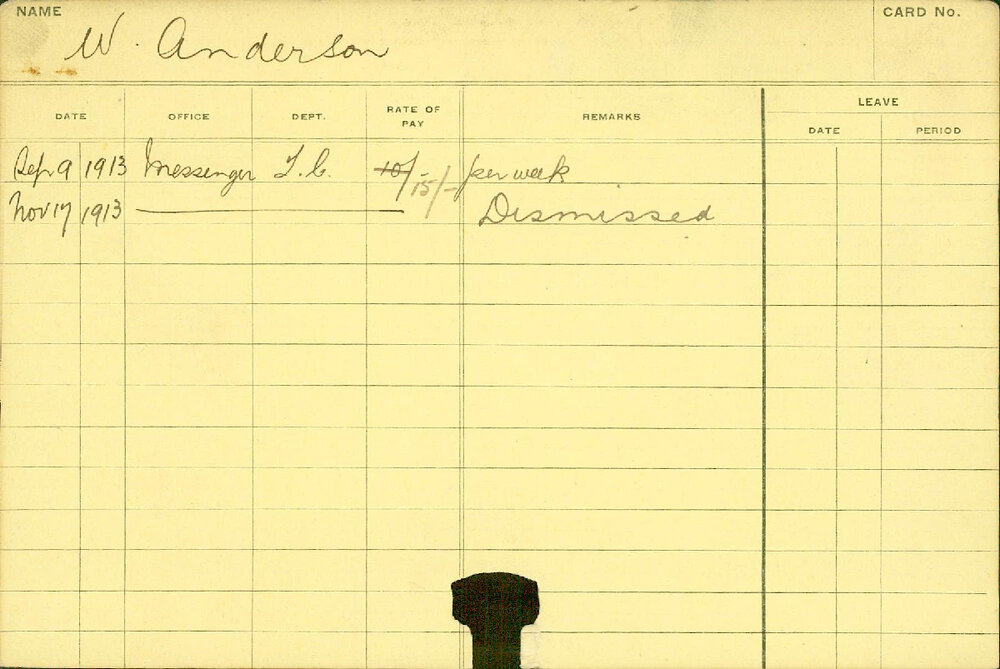 NAME CARD No.
W. Anderson
LEAVE
DATE OFFICE DEPT. RATE OF PAY REMARKS DATE PERIOD
Sep 9 1913 Messenger T.C. 10/- 15/- per week
Nov 17 1913 Dismissed